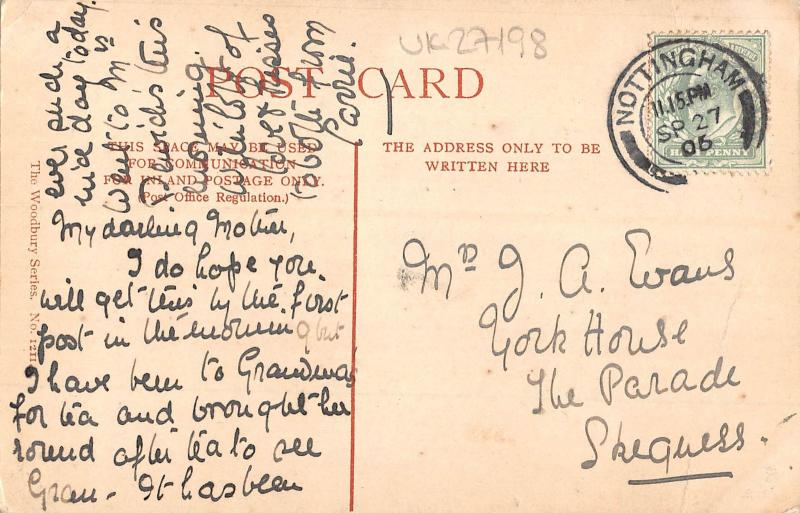 UK27198
POST CARD
THIS SPACE MAY BE USED
FOR COMMUNICATION
FOR INLAND POSTAGE ONLY.
(Post Office Regulation.)
THE ADDRESS ONLY TO BE
WRITTEN HERE
The Woodbury Series. No. 1211
NOTTINGHAM
11.15 PM
SP 27
06
HALF PENNY
My darling Mother,
I do hope you
will get this by the first
post in the morning but
I have been to Grandmas
for tea and brought her
round after tea to see
Gran - It has been
ever such a
nice day today.
Went to Mrs
this
morning.
With lots of
love & kisses
to both from
Carrie.
Mrs J. A. Evans
York House
The Parade
Skegness.